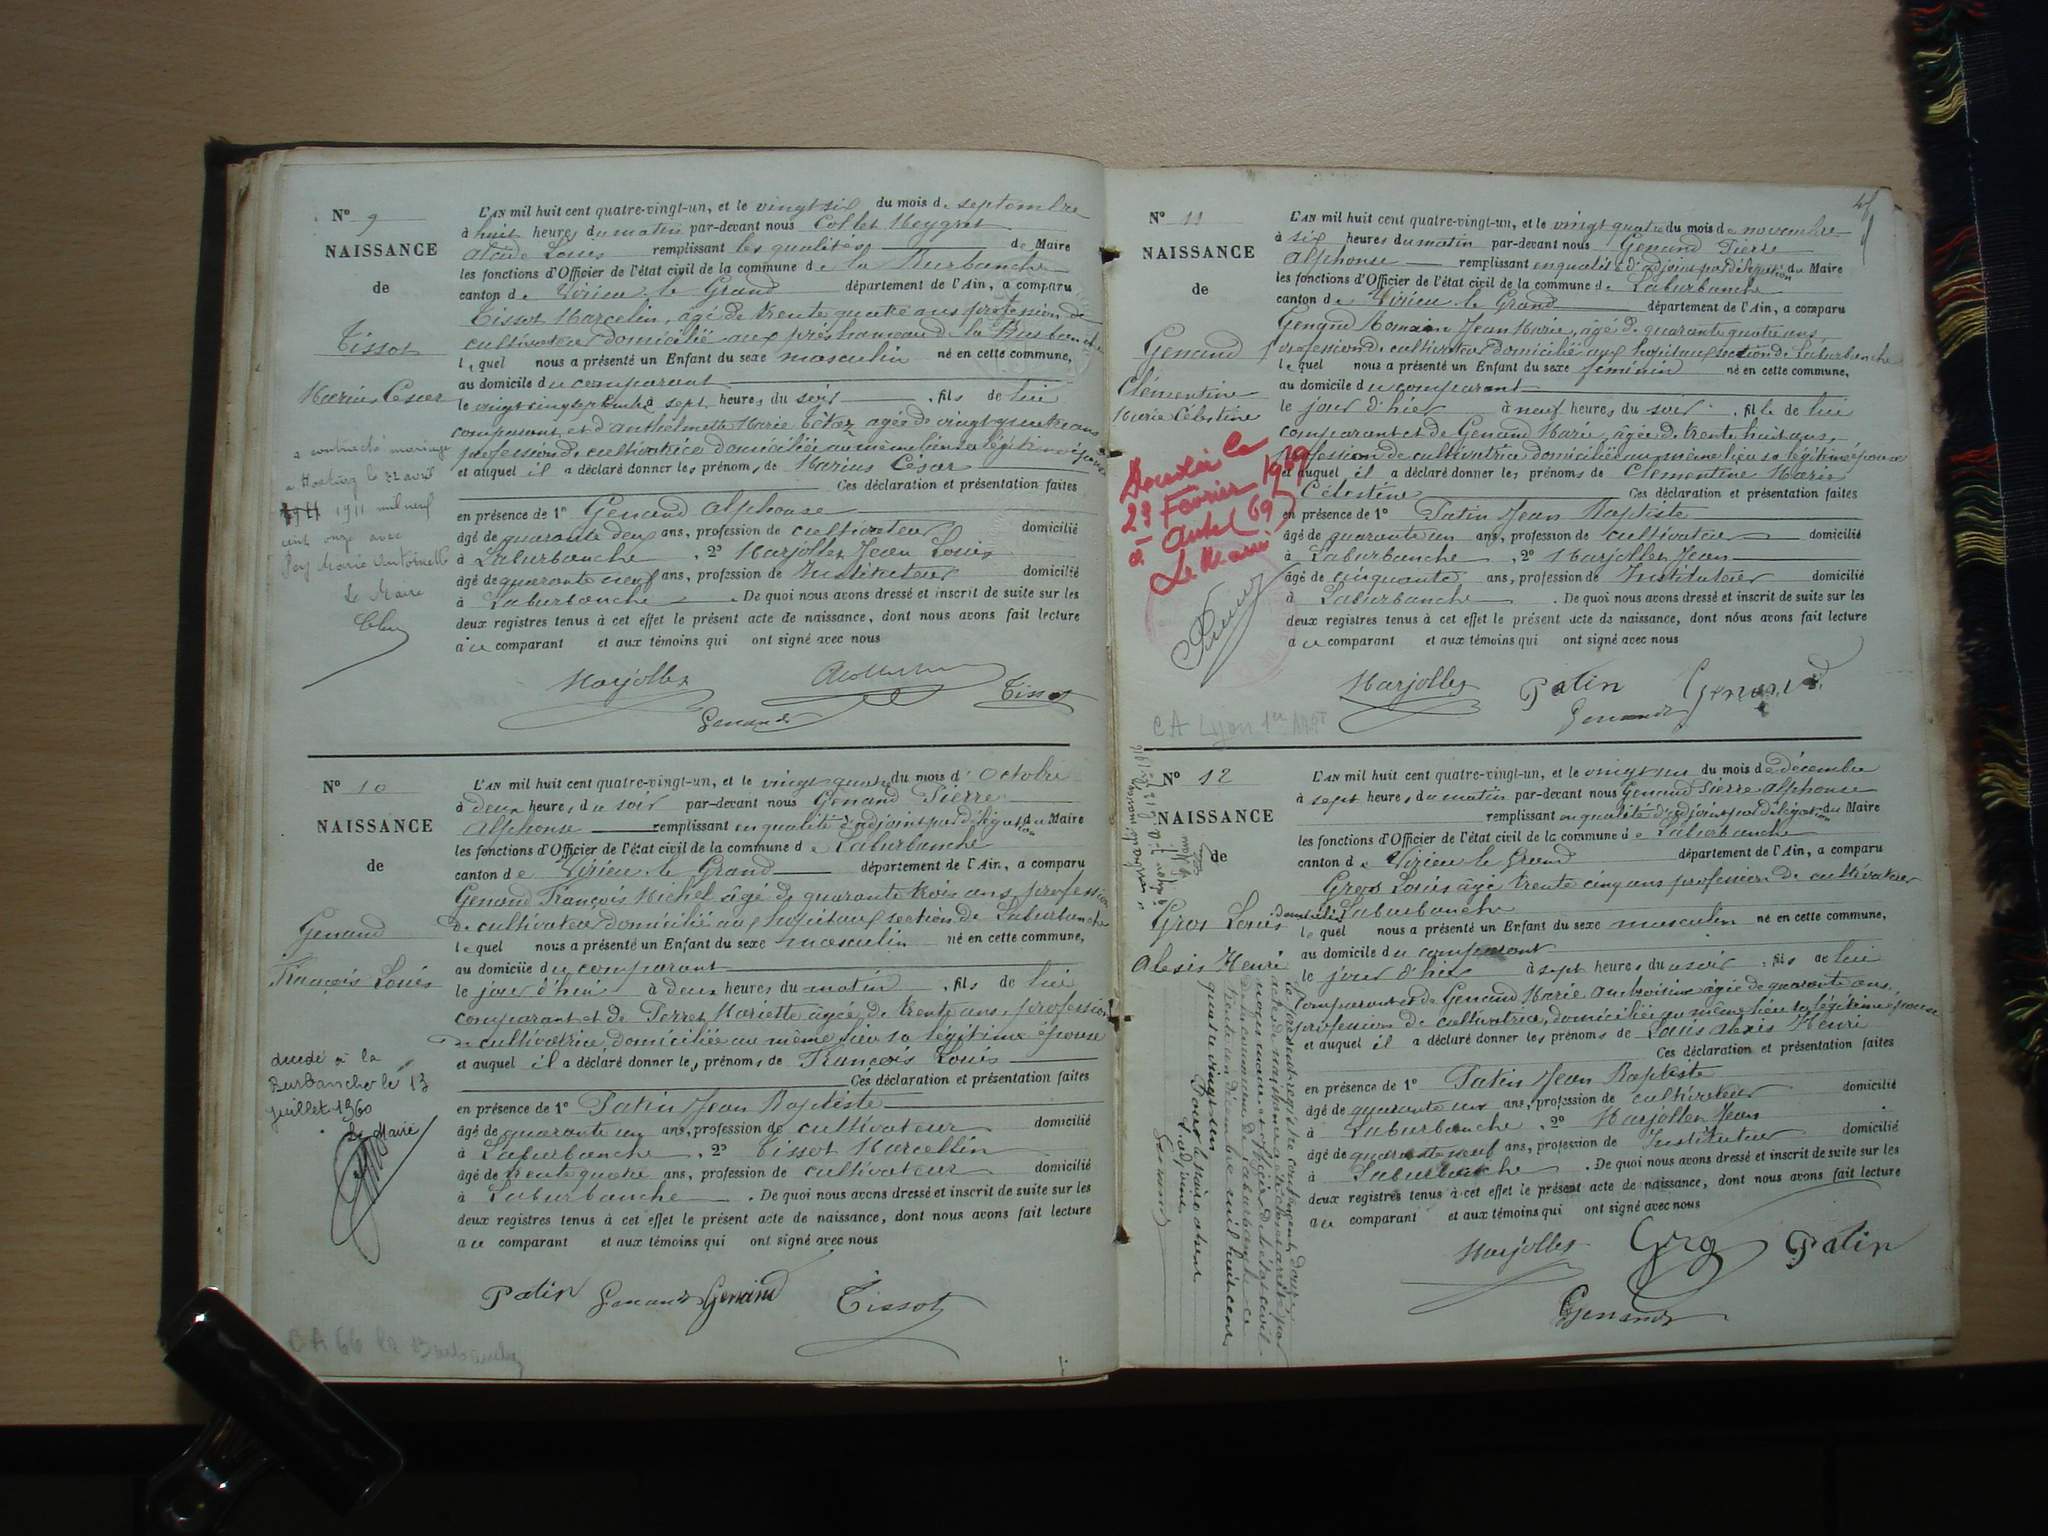 N° 9
NAISSANCE
de
Tissot
Marius César
a contracté mariage
le 22 avril
1911 mil neuf
cent onze avec
Pey Marie Antoinette
Le Maire
L'AN mil huit cent quatre-vingt-un, et le vingt six du mois de septembre
à huit heures du matin par-devant nous Collet Meygret
Alcide Louis remplissant les qualités de Maire
les fonctions d'Officier de l'état civil de la commune de la Burbanche
canton de Virieu le Grand département de l'Ain, a comparu
Tissot Marcelin, âgé de trente quatre ans profession de
cultivateur domicilié aux prés hameau de la Burbanche
lequel nous a présenté un Enfant du sexe masculin né en cette commune,
au domicile du comparant
le vingt cinq septembre à sept heures du soir, fils de lui
comparant et d'Anthelmette Marie agée de vingt quatre ans
profession de cultivatrice domiciliée au même lieu sa légitime épouse
et auquel il a déclaré donner les prénoms de Marius César
Ces déclaration et présentation faites
en présence de 1° Genand Alphonse
âgé de quarante deux ans, profession de cultivateur domicilié
à Laburbanche, 2° Marjollet Jean Louis
âgé de quarante neuf ans, profession de Instituteur domicilié
à Laburbanche. De quoi nous avons dressé et inscrit de suite sur les
deux registres tenus à cet effet le présent acte de naissance, dont nous avons fait lecture
à ce comparant et aux témoins qui ont signé avec nous
Marjollet
Tissot
Genand
N° 10
NAISSANCE
de
Genand
François Louis
décédé à la
Burbanche le 13
juillet 1960
Le Maire
L'AN mil huit cent quatre-vingt-un, et le vingt quatre du mois d'Octobre
à deux heures du soir par-devant nous Genand Pierre
Alphonse remplissant en qualité d'adjoint par délégation du Maire
les fonctions d'Officier de l'état civil de la commune de Laburbanche
canton de Virieu le Grand département de l'Ain, a comparu
Genand François Michel âgé de quarante trois ans, profession
de cultivateur domicilié aux hopitaux section de Laburbanche
lequel nous a présenté un Enfant du sexe masculin né en cette commune,
au domicile du comparant
le jour d'hui à deux heures du matin, fils de lui
comparant et de Perret Mariette âgée de trente ans, profession
de cultivatrice domiciliée au même lieu sa légitime épouse
et auquel il a déclaré donner les prénoms de François Louis
Ces déclaration et présentation faites
en présence de 1° Patin Jean Baptiste
âgé de quarante un ans, profession de cultivateur domicilié
à Laburbanche, 2° Tissot Marcellin
âgé de trente quatre ans, profession de cultivateur domicilié
à Laburbanche. De quoi nous avons dressé et inscrit de suite sur les
deux registres tenus à cet effet le présent acte de naissance, dont nous avons fait lecture
à ce comparant et aux témoins qui ont signé avec nous
Patin Genand Genand Tissot
CA 66 la Burbanche
N° 11
NAISSANCE
de
Genand
Clémentine
Marie Célestine
Décédée le
23 Février 1969
à (69)
Le Maire
CA Lyon 1er Arrt
L'AN mil huit cent quatre-vingt-un, et le vingt quatre du mois de novembre
à six heures du matin par-devant nous Genand Pierre
Alphonse remplissant en qualité d'adjoint par délégation du Maire
les fonctions d'Officier de l'état civil de la commune de Laburbanche
canton de Virieu le Grand département de l'Ain, a comparu
Genand Romain Jean Marie, âgé de quarante quatre ans
profession de cultivateur domicilié aux hopitaux section de Laburbanche
lequel nous a présenté un Enfant du sexe féminin né en cette commune,
au domicile du comparant
le jour d'hier à neuf heures du soir, fille de lui
comparant et de Genand Marie, âgée de trente huit ans,
profession de cultivatrice domiciliée au même lieu sa légitime épouse
et auquel il a déclaré donner les prénoms de Clémentine Marie
Célestine Ces déclaration et présentation faites
en présence de 1° Patin Jean Baptiste
âgé de quarante un ans, profession de cultivateur domicilié
à Laburbanche, 2° Marjollet Jean
âgé de cinquante ans, profession de Instituteur domicilié
à Laburbanche. De quoi nous avons dressé et inscrit de suite sur les
deux registres tenus à cet effet le présent acte de naissance, dont nous avons fait lecture
à ce comparant et aux témoins qui ont signé avec nous
Marjollet Patin Genand
Genand
N° 12
NAISSANCE
de
Gros Louis
Alexis Henri
L'AN mil huit cent quatre-vingt-un, et le vingt un du mois de décembre
à sept heures du matin par-devant nous Genand Pierre Alphonse
remplissant en qualité d'adjoint par délégation du Maire
les fonctions d'Officier de l'état civil de la commune de Laburbanche
canton de Virieu le Grand département de l'Ain, a comparu
Gros Louis âgé trente cinq ans profession de cultivateur
domicilié à Laburbanche
lequel nous a présenté un Enfant du sexe masculin né en cette commune,
au domicile du comparant
le jour d'hier à sept heures du soir, fils de lui
comparant et de Genand Marie Ambroisine âgée de quarante ans,
profession de cultivatrice, domiciliée au même lieu sa légitime épouse
et auquel il a déclaré donner les prénoms de Louis Alexis Henri
Ces déclaration et présentation faites
en présence de 1° Patin Jean Baptiste
âgé de quarante un ans, profession de cultivateur domicilié
à Laburbanche, 2° Marjollet Jean
âgé de quarante neuf ans, profession de Instituteur domicilié
à Laburbanche. De quoi nous avons dressé et inscrit de suite sur les
deux registres tenus à cet effet le présent acte de naissance, dont nous avons fait lecture
à ce comparant et aux témoins qui ont signé avec nous
Marjollet Gros Patin
Genand
Le présent registre contenant douze
actes de naissance a été clos et arrêté par
nous maire et officier de l'état civil
de la commune de Laburbanche ce
trente un décembre mil huit cent
quatre vingt un
Pour le Maire absent
L'adjoint
Genand